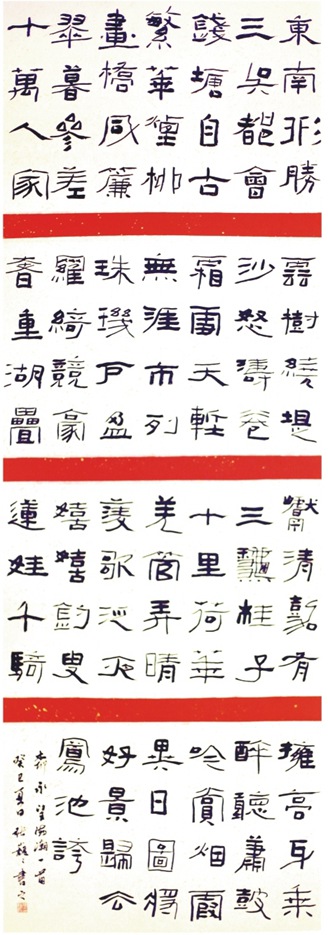 東南形勝
三吳都會
錢塘自古
繁華煙柳
畫橋風簾
翠暮參差
十萬人家
雲樹繞堤
沙怒濤卷
霜雪天塹
無涯市列
珠璣戶盈
羅綺競豪
奢重湖疊
巘清嘉有
三龝桂子
十里荷華
羌管弄晴
菱歌泛夜
嬉嬉釣叟
蓮娃千騎
擁高牙乘
醉聽蕭鼓
吟賞烟霞
異日圖將
好景歸去
鳳池誇
柳永望海潮一首
癸巳夏日書之